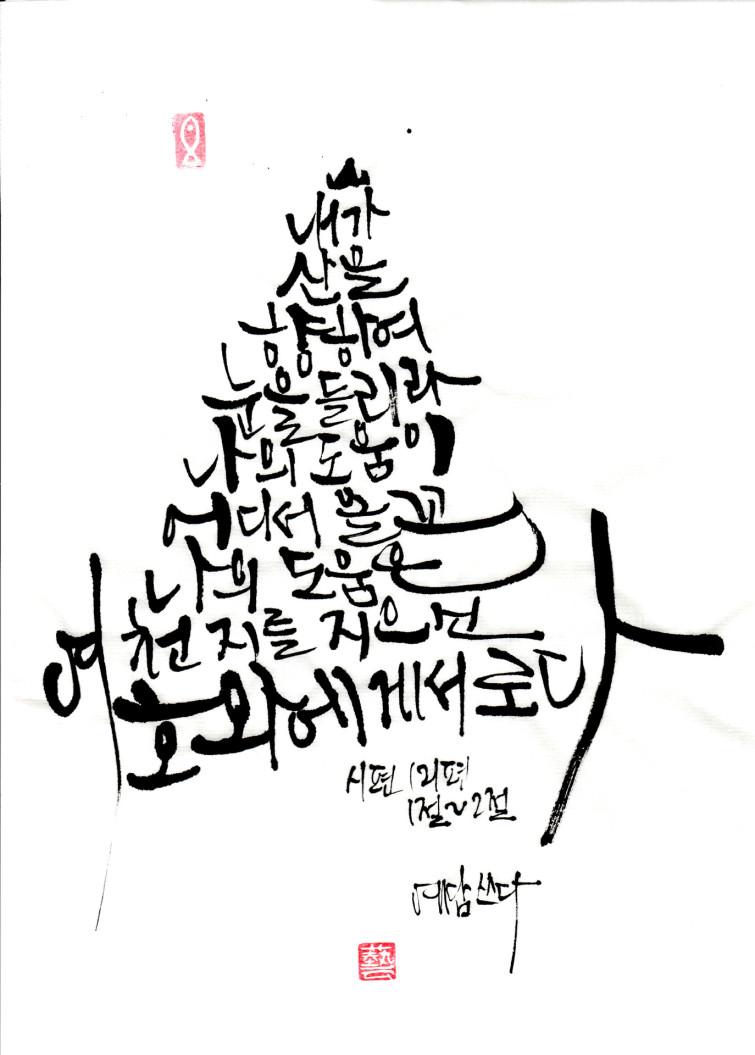 내가
산을
향하여
눈을 들리라
나의 도움이
어디서 올꼬
나의 도움은
천지를 지으신
여호와에게서로다
시편 121편
1절~2절
예담쓰다
藝